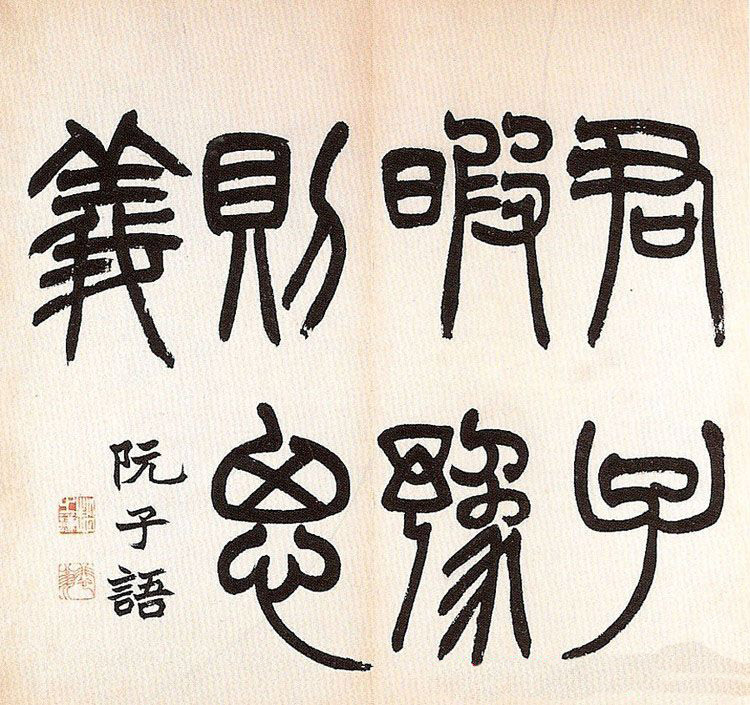 君子
暇豫
則思
義
阮子語